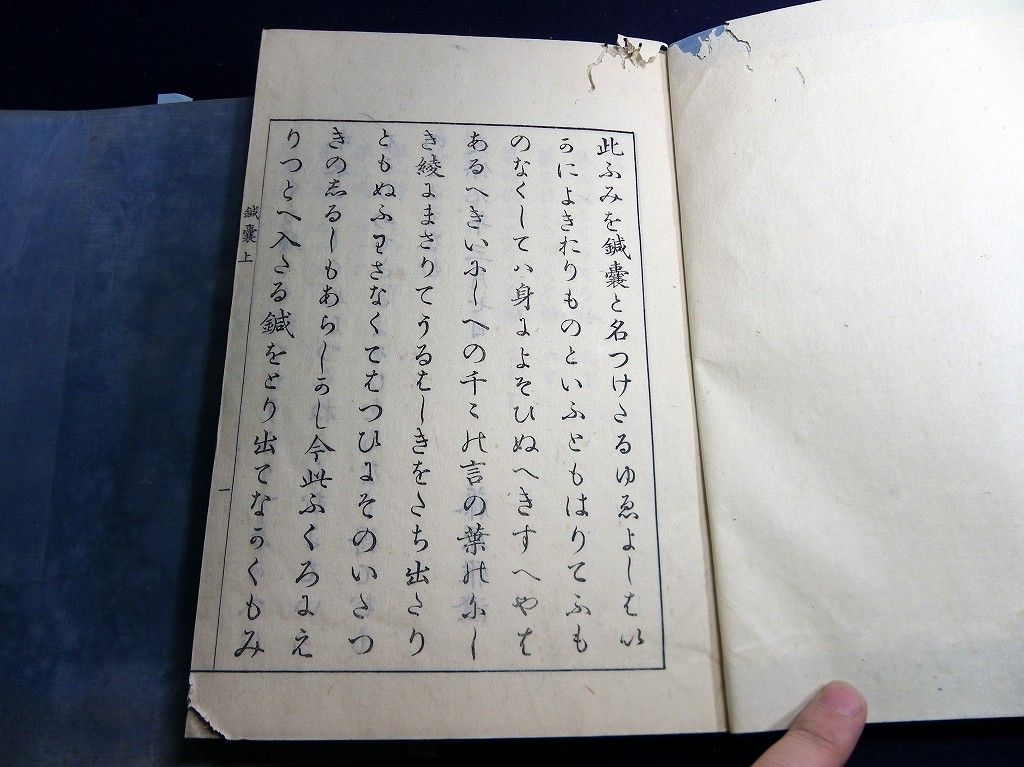 此ふみを鍼嚢と名つけたるゆゑよしはい
かによきおりものといふともはりてふも
のなくしてハ身によそひぬへきすへやは
あるへきいにしへの千ゝの言の葉のにし
き綾にまさりてうるはしきをたち出たり
ともぬふわさなくてはつひにそのいたつ
きのしるしもあらしかし今此ふくろにえ
りつとへ入たる鍼をとり出てなかくもみ
鍼嚢上
一